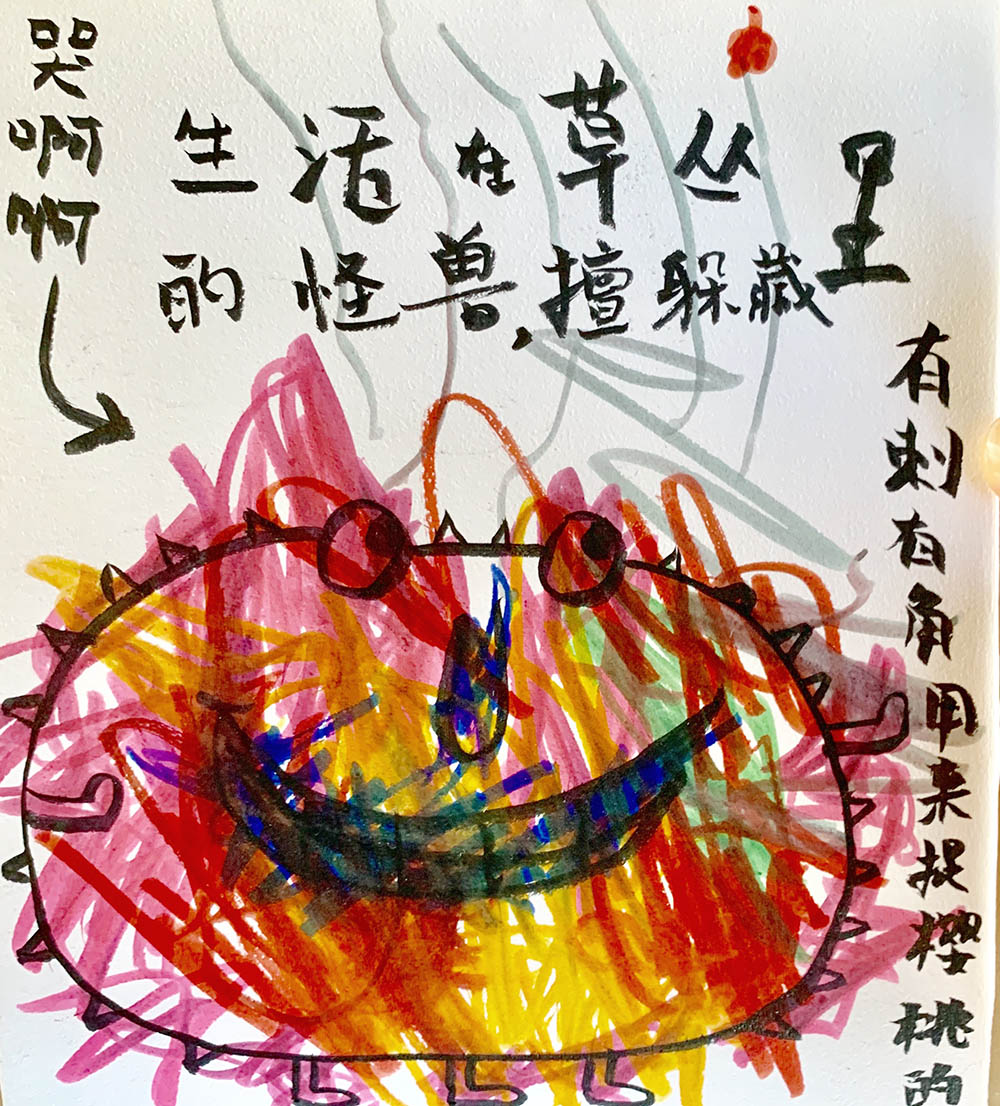 哭啊啊
生活在草丛里
的怪兽,擅躲藏
有刺有角用来捉樱桃的